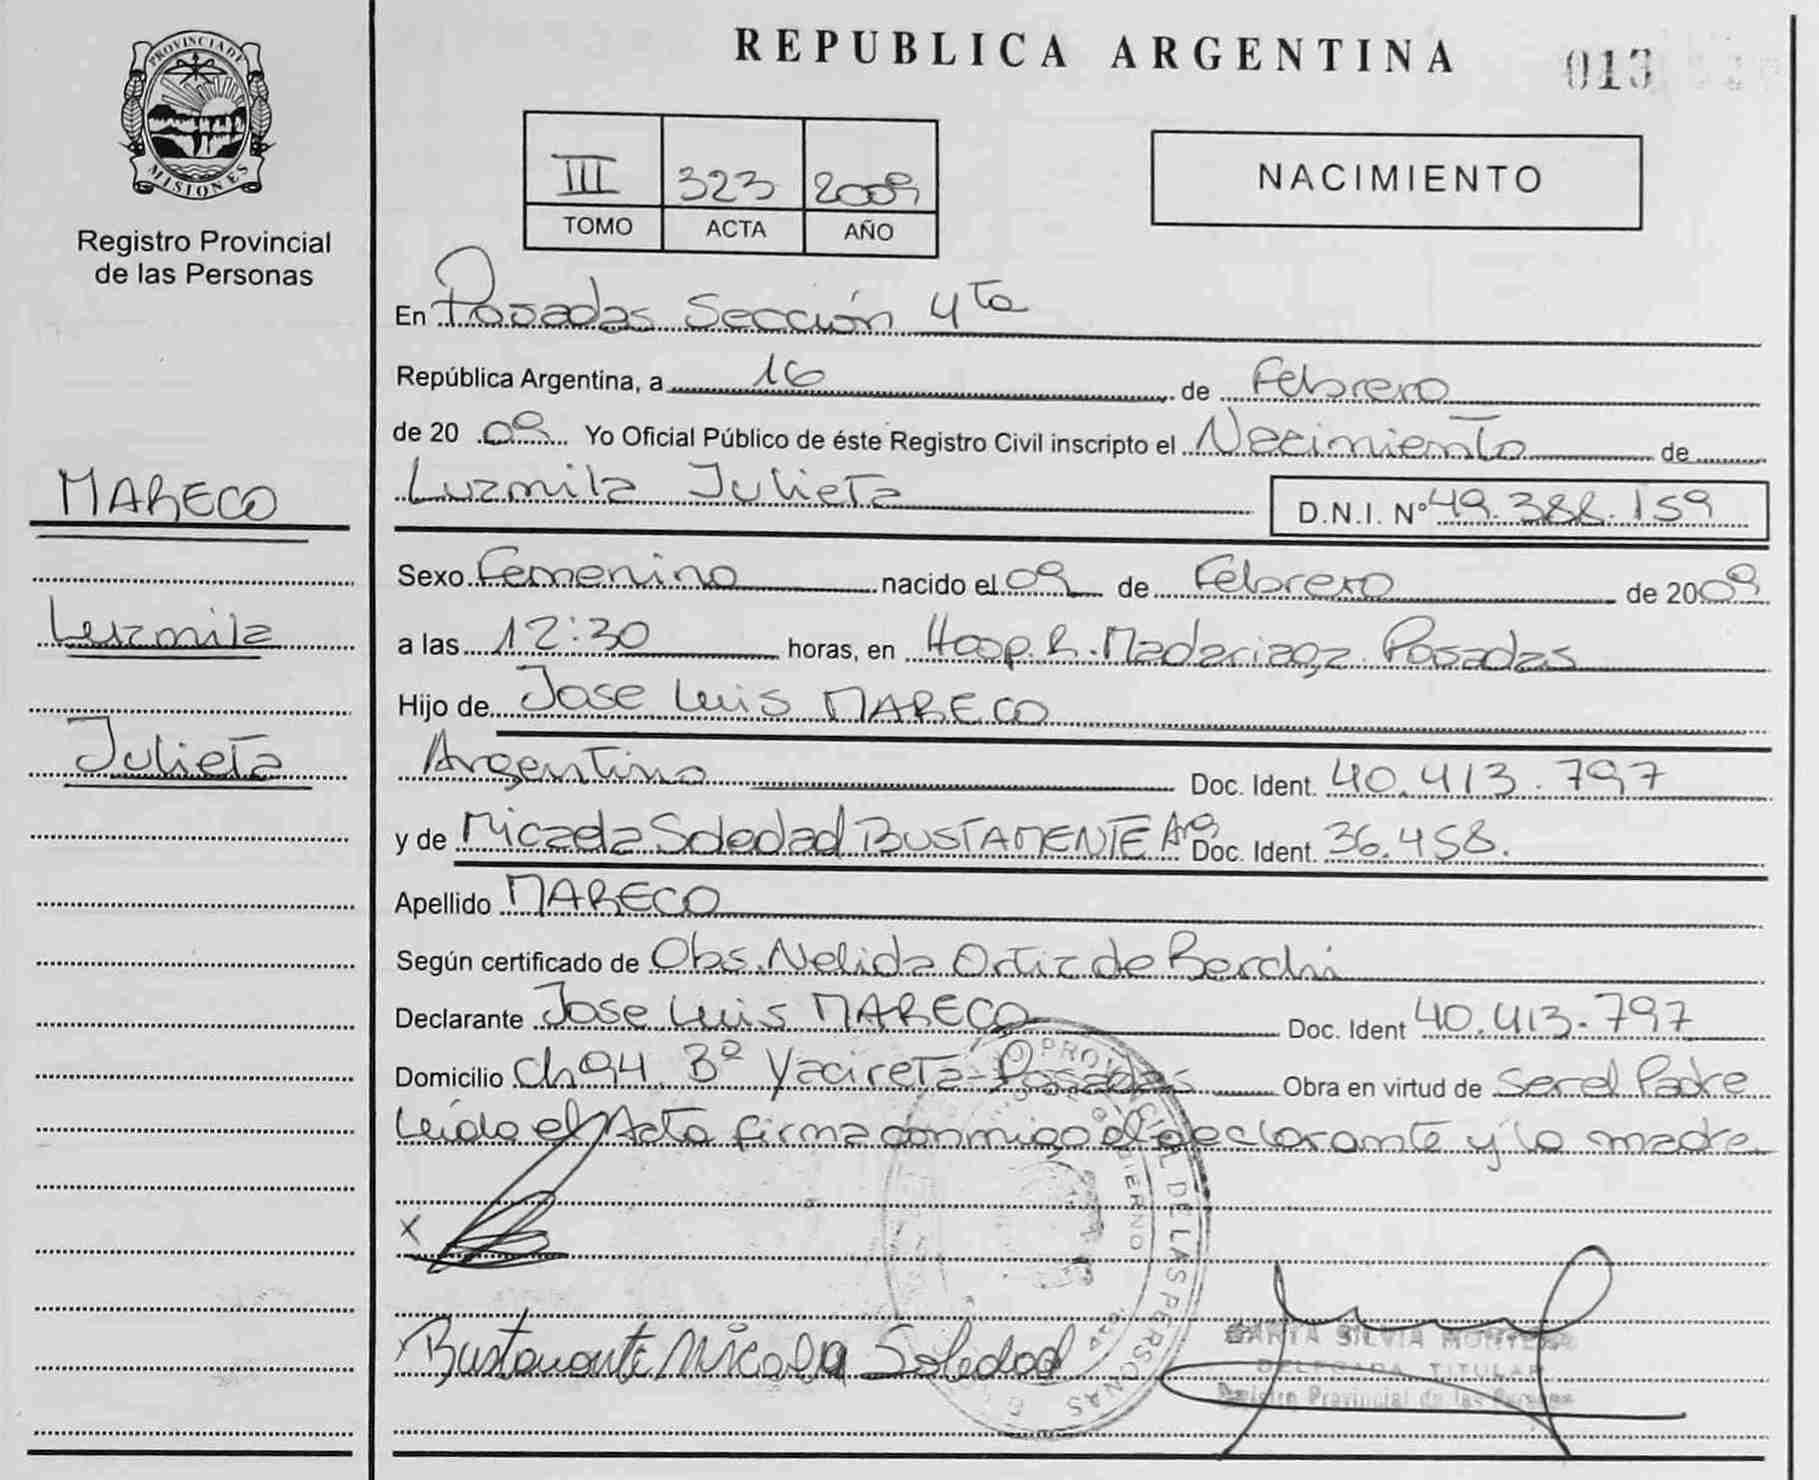 PROVINCIA DE
MISIONES
Registro Provincial
de las Personas
MARECO
Luzmila
Julieta
REPUBLICA ARGENTINA
013
III 323 2009
TOMO ACTA AÑO
NACIMIENTO
En Posadas Sección 4ta
República Argentina, a 16 de Febrero
de 20 09 Yo Oficial Público de éste Registro Civil inscripto el Nacimiento de
Luzmila Julieta D.N.I. Nº 49.388.159
Sexo Femenino nacido el 09 de Febrero de 2009
a las 12:30 horas, en Hosp. R. Madariaga Posadas
Hijo de Jose Luis MARECO
Argentino Doc. Ident. 40.413.797
y de Micaela Soledad BUSTAMENTE Arg Doc. Ident. 36.458.
Apellido MARECO
Según certificado de Obs. Nelida Ortiz de Berchi
Declarante Jose Luis MARECO Doc. Ident 40.413.797
Domicilio Ch 94 Bº Yacireta Posadas Obra en virtud de ser el Padre
Leido el Acta firma conmigo el declarante y la madre
X
Bustamante Micaela Soledad
SILVIA
DELEGADA TITULAR
Registro Provincial de las Personas